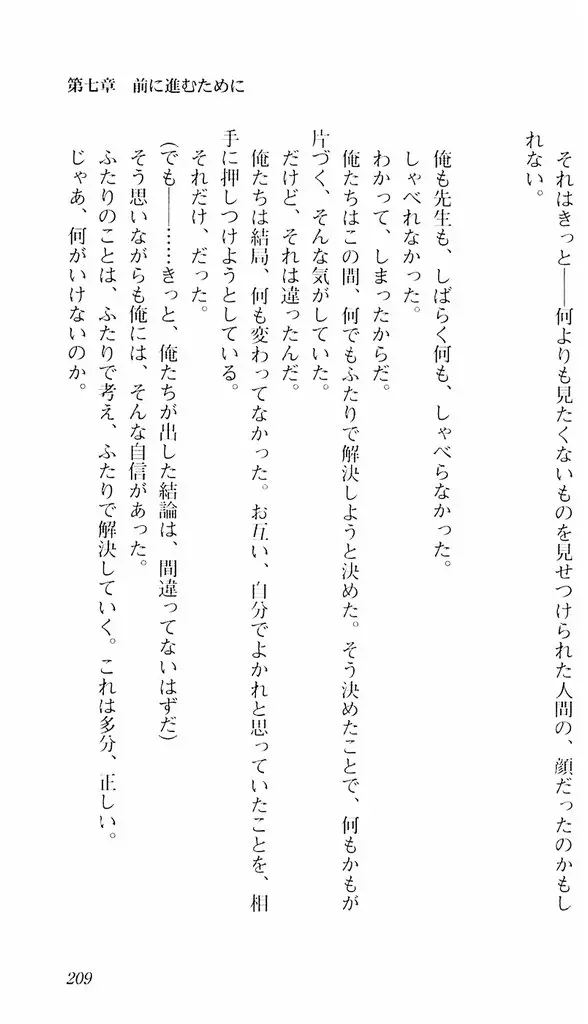 第七章　前に進むために
それはきっと――何よりも見たくないものを見せつけられた人間の、顔だったのかもし
れない。
俺も先生も、しばらく何も、しゃべらなかった。
しゃべれなかった。
わかって、しまったからだ。
俺たちはこの間、何でもふたりで解決しようと決めた。そう決めたことで、何もかもが
片づく、そんな気がしていた。
だけど、それは違ったんだ。
俺たちは結局、何も変わってなかった。お互い、自分でよかれと思っていたことを、相
手に押しつけようとしている。
それだけ、だった。
(でも――……きっと、俺たちが出した結論は、間違ってないはずだ)
そう思いながらも俺には、そんな自信があった。
ふたりのことは、ふたりで考え、ふたりで解決していく。これは多分、正しい。
じゃあ、何がいけないのか。
209